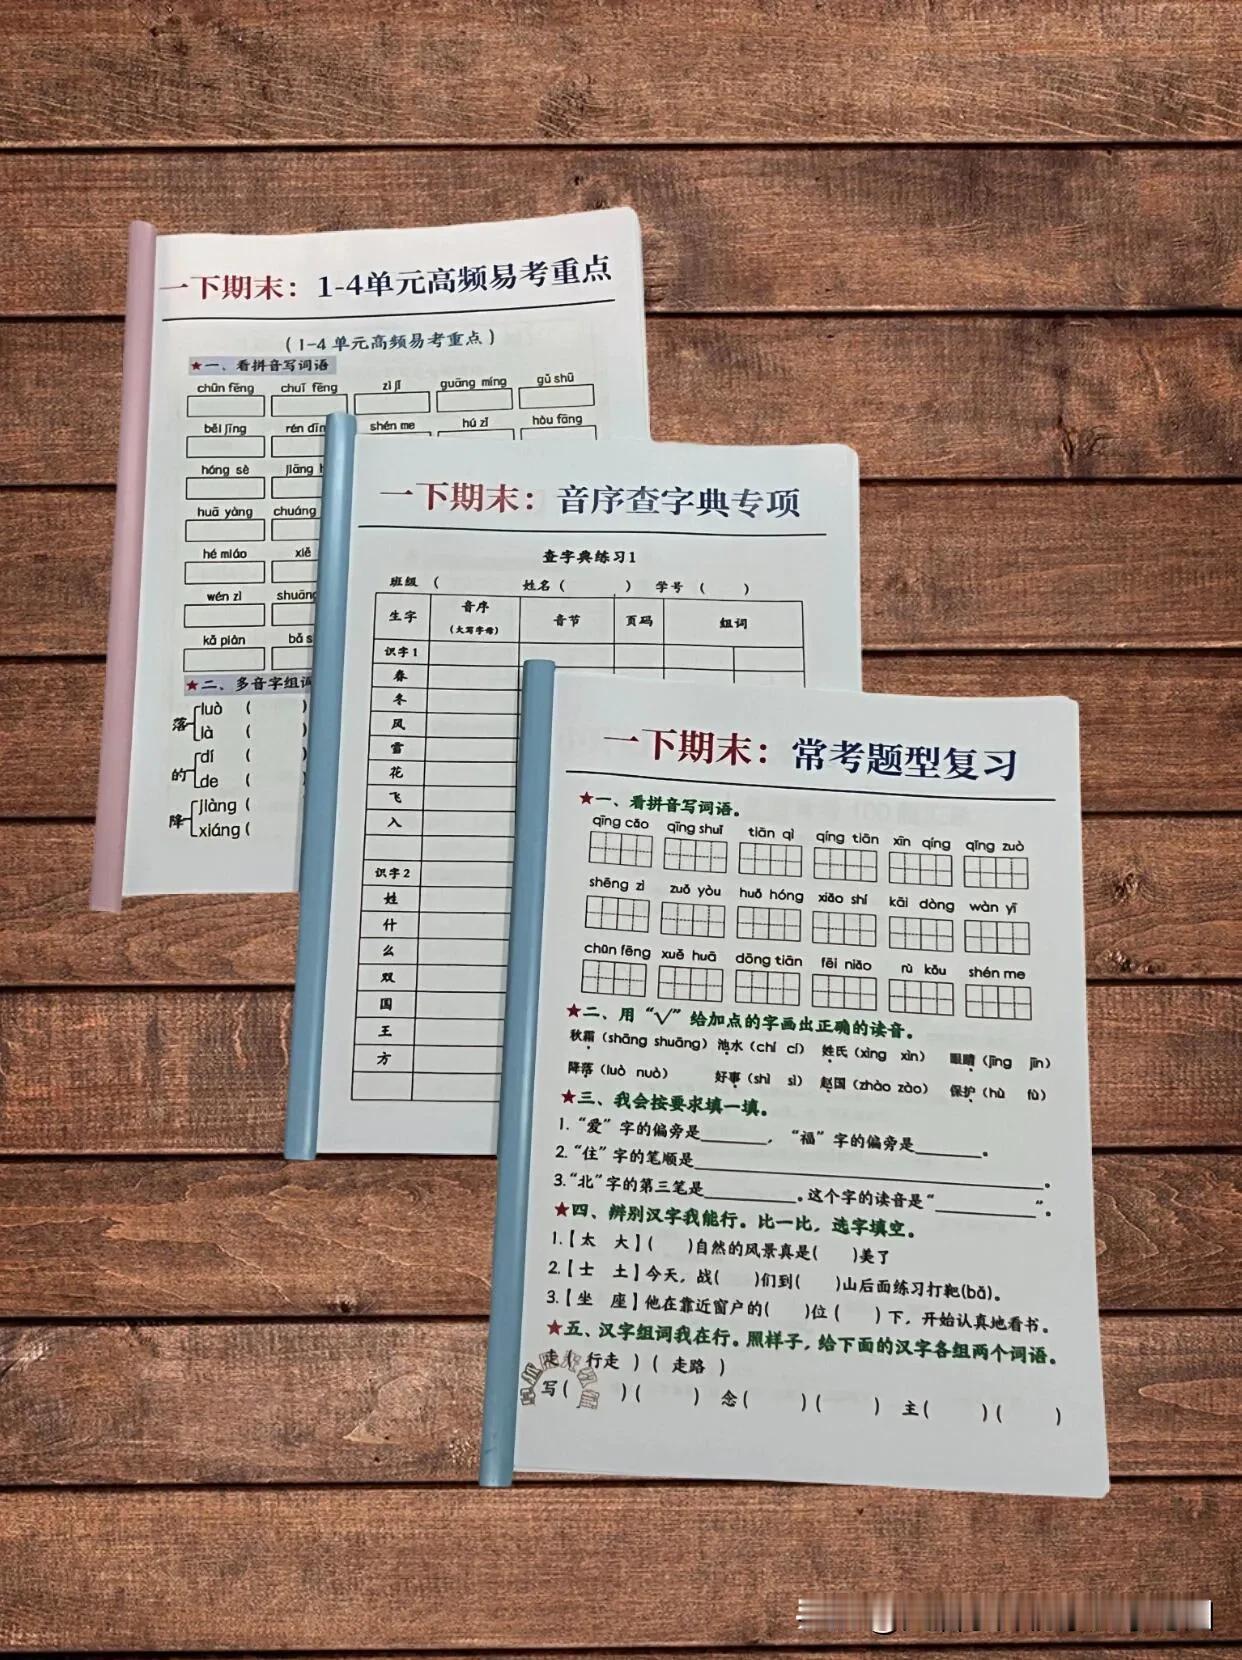 一下期末：1-4单元高频易考重点
（1-4 单元高频易考重点）
★一、看拼音写词语
chūn fēng chuī fēng zì jǐ guāng míng gǔ shū
běi jīng rén dīn shén me hú zǐ hòu fāng
hóng sè jiāng h
huā yàng chuáng
hé miáo xiě
wén zì shuāng
kǎ piàn bǎ s
★二、多音字组词
落 luò （ ）
là （ ）
的 dí （ ）
de （ ）
降 jiàng （
xiáng （
一下期末：音序查字典专项
查字典练习1
班级 （ 姓名（ ） 学号 （ ）
生字 音序（大写字母） 音节 页码 组词
识字1
春
冬
风
雪
花
飞
入
识字2
姓
什
么
双
国
王
方
一下期末：常考题型复习
★一、看拼音写词语。
qīng cǎo qīng shuǐ tiān qì qíng tiān xīn qíng qǐng zuò
shēng zì zuǒ yòu huǒ hóng xiǎo shí kāi dòng wàn yī
chūn fēng xuě huā dōng tiān fēi niǎo rù kǒu shén me
★二、用“√”给加点的字画出正确的读音。
秋霜（shāng shuāng） 池水（chí cí） 姓氏（xìng xìn） 眼睛（jīng jīn）
降落（luò nuò） 好事（shì sì） 赵国（zhào zào） 保护（hù fù）
★三、我会按要求填一填。
1.“爱”字的偏旁是________，“福”字的偏旁是________。
2.“住”字的笔顺是________________。
3.“北”字的第三笔是________。这个字的读音是“________”。
★四、辨别汉字我能行。比一比，选字填空。
1.【太 大】（ ）自然的风景真是（ ）美了
2.【士 土】今天，战（ ）们到（ ）山后面练习打靶(bǎ)。
3.【坐 座】他在靠近窗户的（ ）位（ ）下，开始认真地看书。
★五、汉字组词我在行。照样子，给下面的汉字各组两个词语。
走（ 行走 ）（ 走路 ）
写（ ）（ ） 念（ ）（ ） 主（ ）（ ）